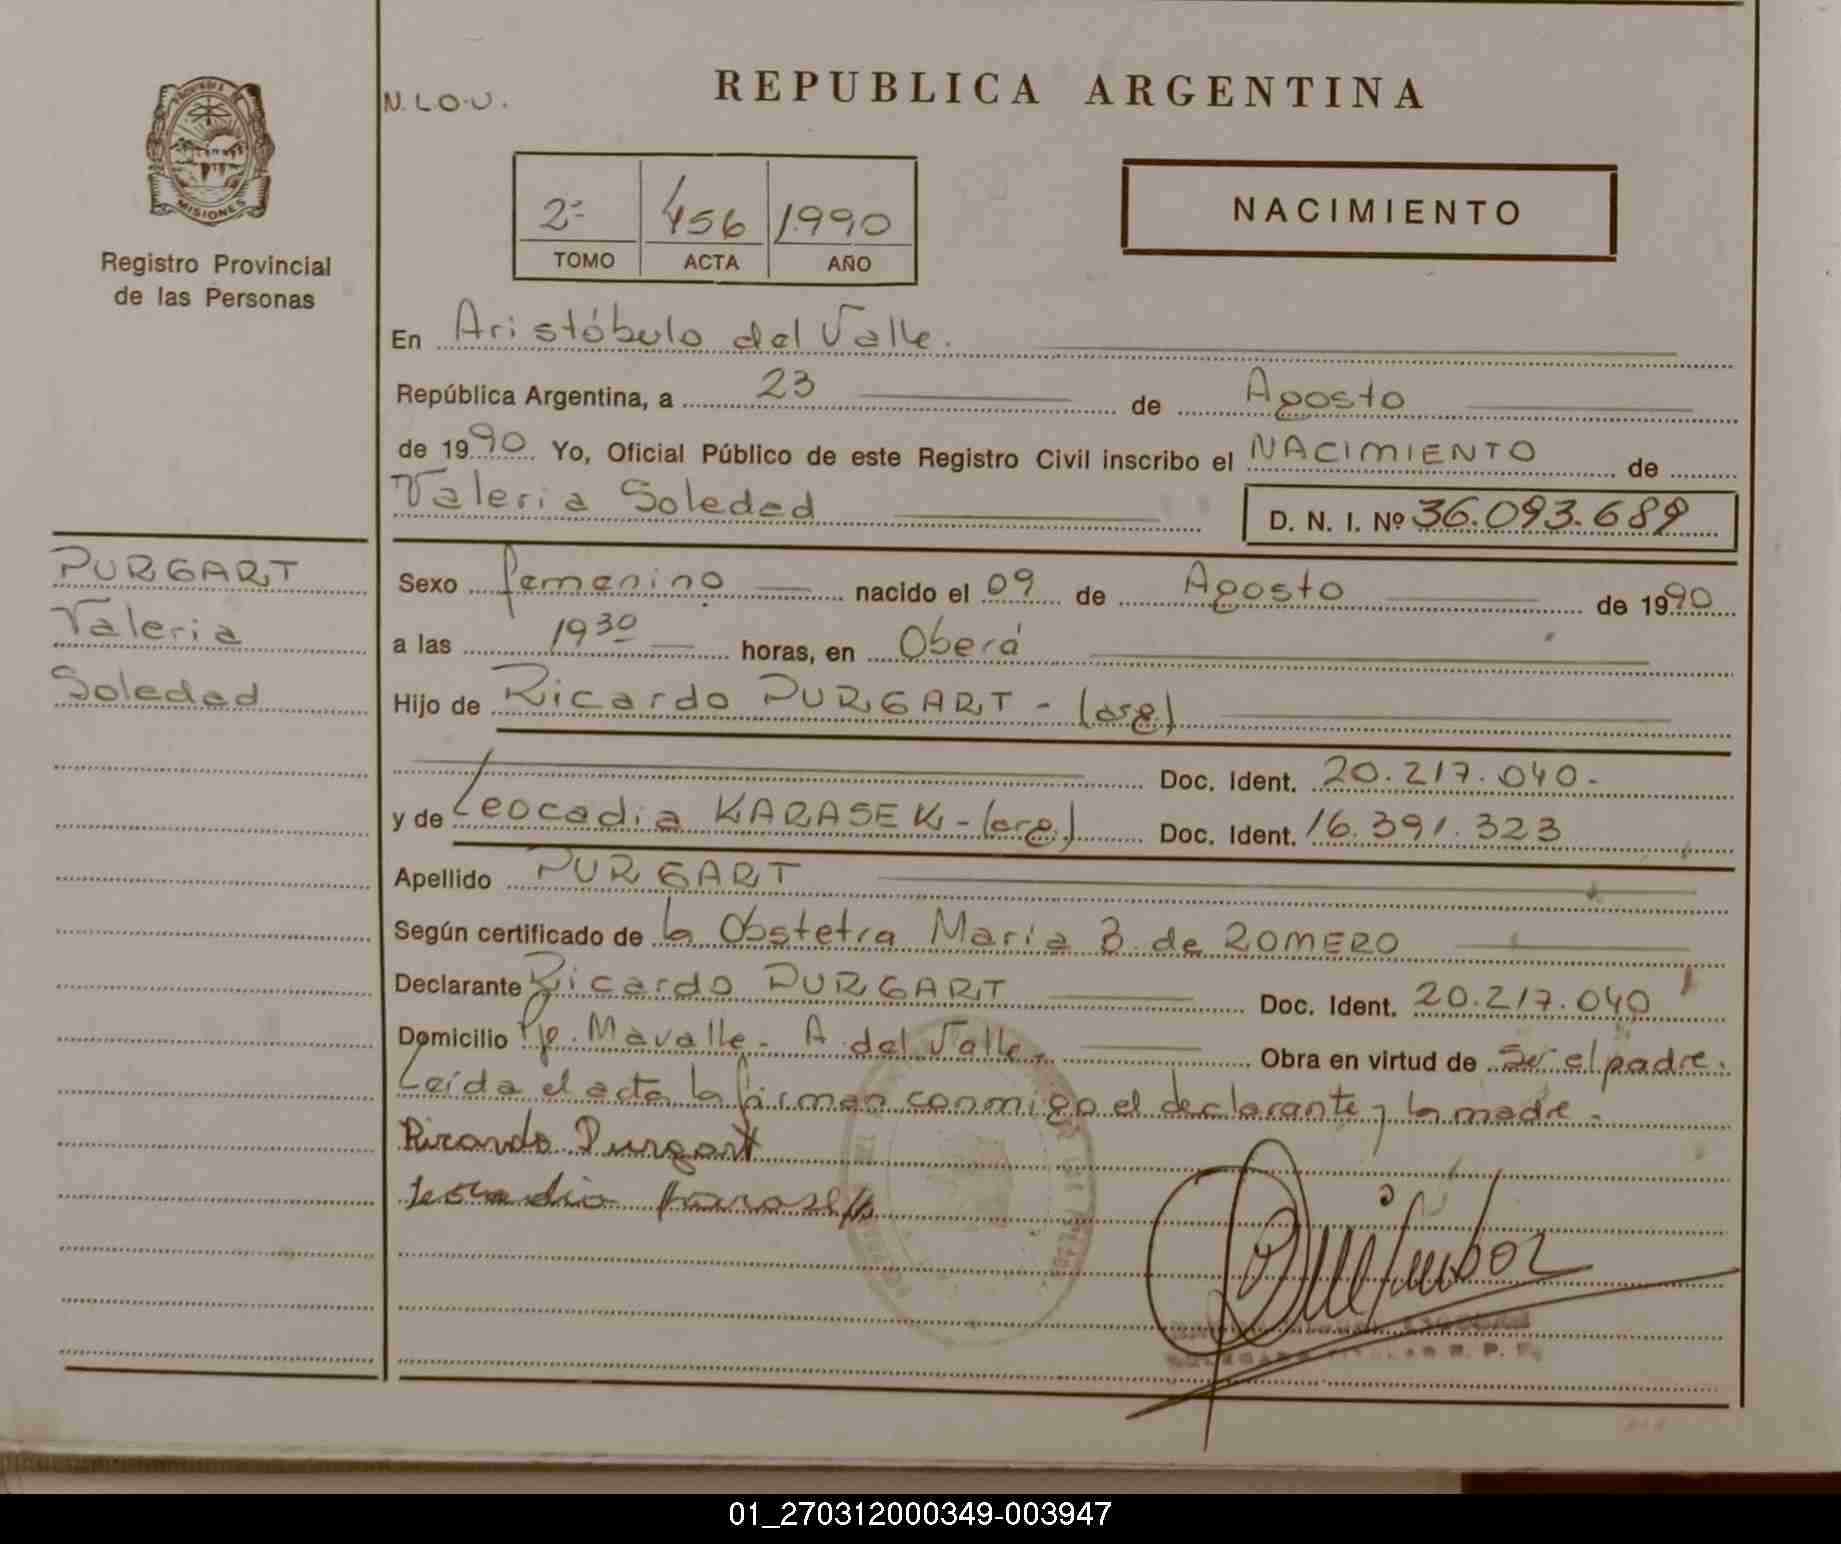 REPUBLICA ARGENTINA
N.LO.U.
PROVINCIA DE
MISIONES
Registro Provincial
de las Personas
2º 456 1990
TOMO ACTA AÑO
NACIMIENTO
En Aristóbulo del Valle.
República Argentina, a 23 de Agosto
de 1990 Yo, Oficial Público de este Registro Civil inscribo el NACIMIENTO de
Valeria Soledad
D. N. I. Nº 36.093.689
PURGART
Valeria
Soledad
Sexo femenino nacido el 09 de Agosto de 1990
a las 19 30 horas, en Oberá
Hijo de Ricardo PURGART - (arg.)
Doc. Ident. 20.217.040-
y de Leocadia KARASEK - (arg.) Doc. Ident. 16.391.323
Apellido PURGART
Según certificado de la Obstetra María B. de ROMERO
Declarante Ricardo PURGART Doc. Ident. 20.217.040
Domicilio Pje. Mavalle - A. del Valle - Obra en virtud de Ser el padre.
Leída el acta la firman conmigo el declarante y la madre -
Ricardo Purgart
Leocadia Karasek
01_270312000349-003947